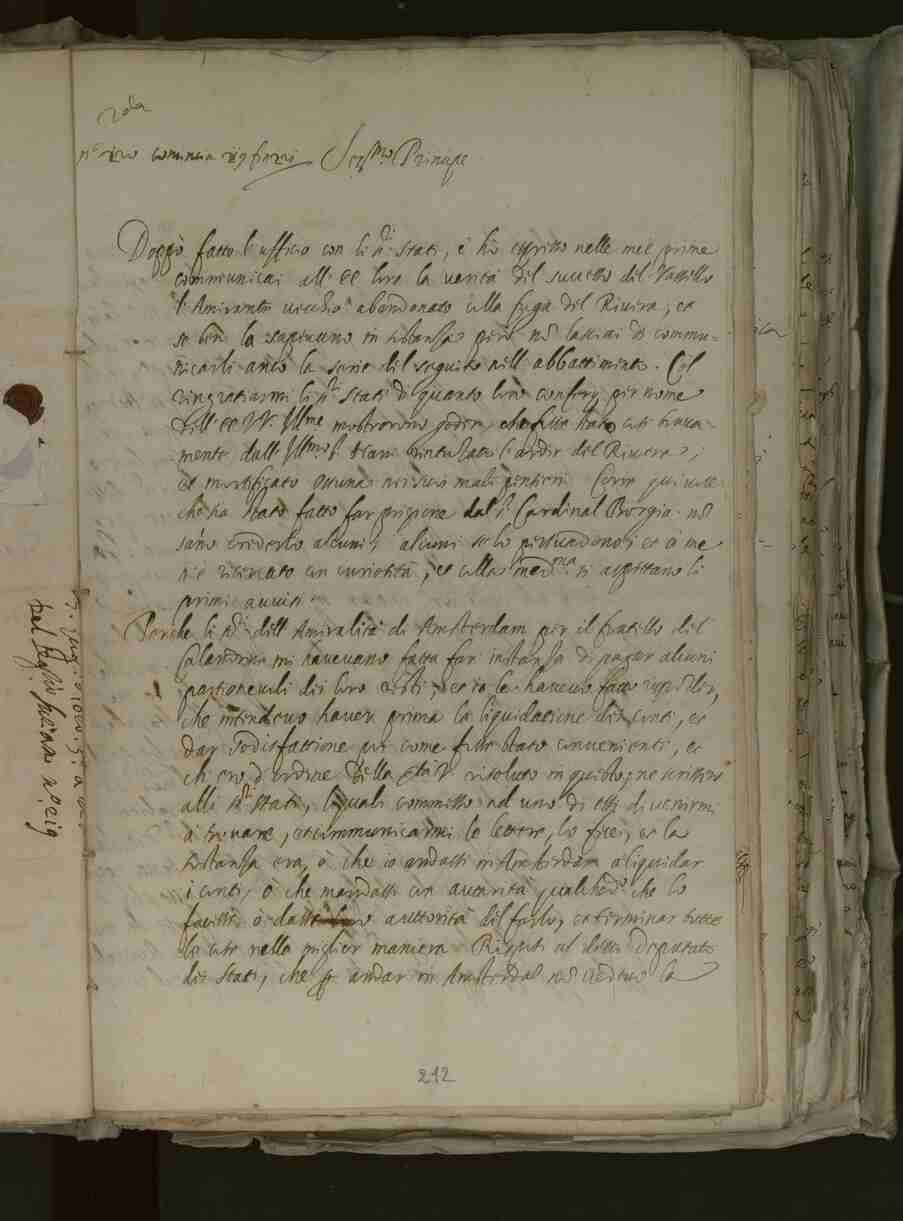 2da
n.º 210 comincia 209 finizi Ser.mo Principe
Doppò fatto l'ufficio con li s.ri Stati, è hò espresso nelle mie prime
communicai all' EE loro la verità del successo del Vassello
l'Amirante vecchio abandonato alla fuga del Rivera, et
se ben la sapevano in sostanza però nõ lasciai di commu-
nicarli anco la serie del seguito nell'abbattimento. Col
ringratiarmi li s.ri Stati di quanto hono conferij per nome
dell' EE VV. Ill.me mostrorono goder, che fusse stato così brava-
mente dall' Ill.mo s.r rintuzzato l'ardir del Rivera,
et mortificato Ossuna nei suoi mali pensieri. Corre qui voce
che sia stato fatto far prigione dal s.r Cardinal Borgia. nõ
sano crederlo alcuni, alcuni se lo persuadono; et a me
n'è ricercato con curiosità, et colla med.ma si aspettano li
primi avvisi.
Perche li s.ri dell' Amiralità di Amsterdam per il fratello del
Calandrini mi havevano fatta far instanza di pagar alcuni
partionevoli dei loro resti, et io le havevo fatto risponder,
che intendevo haver prima la liquidatione dei conti, et
dar sodisfattione poi come fusse stato conveniente, et
ch' ero d'ordine della Ser.tà V. risoluto in questo, ne scrissero
alli s.ri Stati, li quali commisso ad uno di essi di venirmi
à trovare, et communicarmi le lettere, lo fece, et la
sostanza era, ò che io andassi in Amsterdam a liquidar
i conti, ò che mandassi con autorità qualched.º che lo
facesse, ò dasse loro auttorità del farlo, et terminar tutte
le cose nella miglior maniera. Risposi al detto Deputato
dei Stati, che p. andar in Amsterdã nõ vedevo la
212